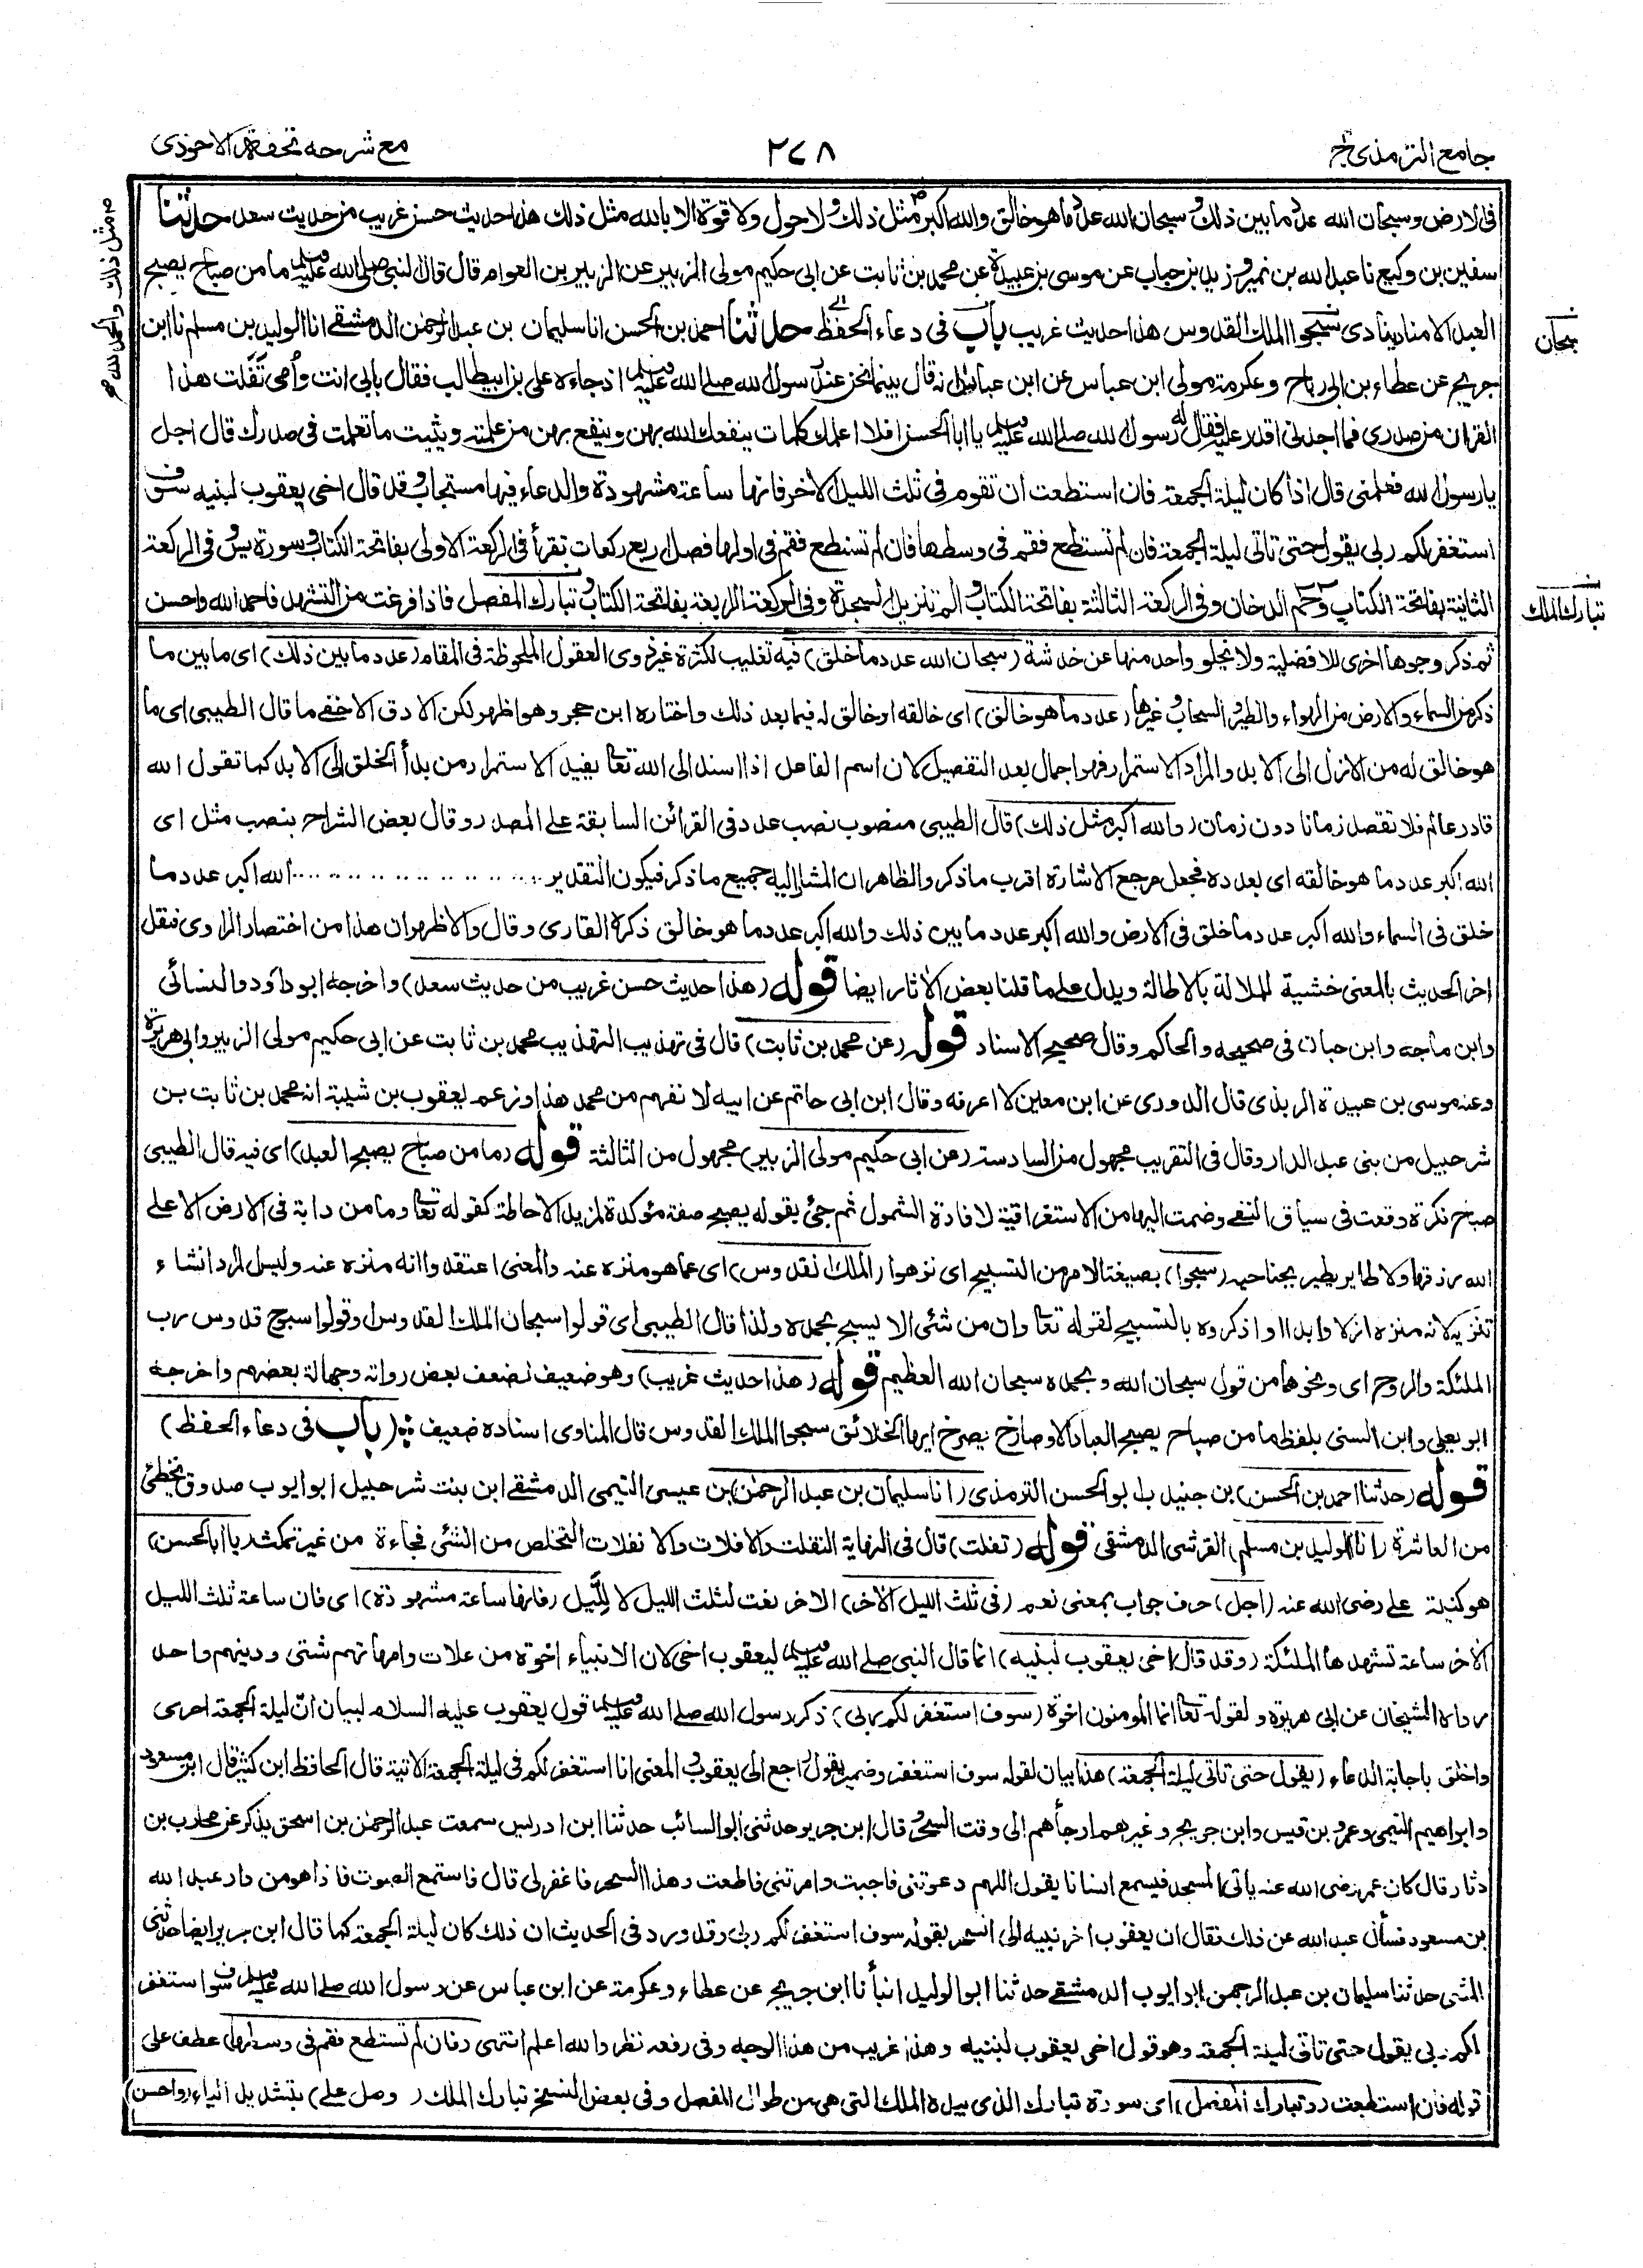 جامع الترمذی ج۴
۲۷۸
مع شرحه تحفة الاحوذی
فی الارض وسبحان الله عدد ما بین ذلك وسبحان الله عدد ما هو خالق والله اكبر مثل ذلك ولا حول ولا قوة الا بالله مثل ذلك هذا حدیث حسن غریب من حدیث سعد حدثنا
سفین بن وكیع نا عبد الله بن نمیر وزید بن حباب عن موسی بن عبیدة عن محمد بن ثابت عن ابی حكیم مولی الزبیر عن الزبیر بن العوام قال قال النبی صلی الله علیه وسلم ما من صباح یصبح
العبد الا منادینادی سبحوا الملك القدوس هذا حدیث غریب باب فی دعاء الحفظ حدثنا احمد بن الحسن انا سلیمان بن عبد الرحمن الدمشقی انا الولید بن مسلم نا ابن
جریج عن عطاء بن ابی رباح وعكرمة مولی ابن عباس عن ابن عباس انه قال بینما نحن عند رسول الله صلی الله علیه وسلم اذ جاءه علی بن ابیطالب فقال بابی انت وأمی تفلت هذا
القران من صدری فما اجدنی اقدر علیه فقال له رسول الله صلی الله علیه وسلم یا ابا الحسن افلا اعلمك كلمات ینفعك الله بهن وینفع بهن من علمته ویثبت ما تعلمت فی صدرك قال اجل
یا رسول الله فعلمنی قال اذا كان لیلة الجمعة فان استطعت ان تقوم فی ثلث اللیل الاخر فانها ساعة مشهودة والدعاء فیها مستجاب وقد قال اخی یعقوب لبنیه سوف
استغفر لكم ربی یقول حتی تاتی لیلة الجمعة فان لم تستطع فقم فی وسطها فان لم تستطع فقم فی اولها فصل اربع ركعات تقرأ فی الركعة الاولی بفاتحة الكتاب وسورة یٰس وفی الركعة
الثانیة بفاتحة الكتاب وحم الدخان وفی الركعة الثالثة بفاتحة الكتاب والم تنزیل السجدة وفی الركعة الرابعة بفاتحة الكتاب وتبارك المفصل فاذا فرغت من التشهد فاحمد الله واحسن
مثل ذلك والحمد لله
سبحان
تبارك الملك
ثم ذكر وجوها اخری للافضلیة ولا یخلو واحد منها عن خدشة (سبحان الله عدد ما خلق) فیه تغلیب لكثرة غیر ذوی العقول الملحوظة فی المقام (عدد ما بین ذلك) ای ما بین ما
ذكر من السماء والارض من الهواء والطیر والسحاب وغیرها (عدد ما هو خالق) ای خالقه او خالق له فیما بعد ذلك واختاره ابن حجر وهو اظهر لكن الادق الاخفی ما قال الطیبی ای ما
هو خالق له من الازل الی الابد والمراد الاستمرار فهو اجمال بعد التفصیل لان اسم الفاعل اذا اسند الی الله تعا یفید الاستمرار من بدأ الخلق الی الابد كما تقول الله
قادر عالم فلا تقصد زمانا دون زمان (والله اكبر مثل ذلك) قال الطیبی منصوب نصب عدد فی القرائن السابقة علی المصدر وقال بعض الشراح بنصب مثل ای
الله اكبر عدد ما هو خالقه ای بعدده فجعل مرجع الاشارة اقرب ما ذكر والظاهر ان المشار الیه جمیع ما ذكر فیكون التقدیر ........ الله اكبر عدد ما
خلق فی السماء والله اكبر عدد ما خلق فی الارض والله اكبر عدد ما بین ذلك والله اكبر عدد ما هو خالق ذكره القاری وقال والاظهر ان هذا من اختصار الراوی فنقل
اخر الحدیث بالمعنی خشیة للملالة بالاطالة ویدل علی ما قلنا بعض الاثار ایضا قوله (هذا حدیث حسن غریب من حدیث سعد) واخرجه ابو داؤد والنسائی
وابن ماجه وابن حبان فی صحیحه والحاكم وقال صحیح الاسناد قوله (عن محمد بن ثابت) قال فی تهذیب التهذیب محمد بن ثابت عن ابی حكیم مولی الزبیر وابی هریرة
وعنه موسی بن عبیدة الربذی قال الدوری عن ابن معین لا اعرفه وقال ابن ابی حاتم عن ابیه لا نفهم من محمد هذا وزعم یعقوب بن شیبة انه محمد بن ثابت بن
شرحبیل من بنی عبد الدار وقال فی التقریب مجهول من السادسة (عن ابی حكیم مولی الزبیر) مجهول من الثالثة قوله (ما من صباح یصبح العبد) ای فیه قال الطیبی
صباح نكرة وقعت فی سیاق النفی وضمت الیها من الاستغراقیة لافادة الشمول ثم جئ بقوله یصبح صفة مؤكدة لمزید الاحاطة كقوله تعا وما من دابة فی الارض الا علی
الله رزقها ولا طایر یطیر بجناحیه (سبحوا) بصیغة الامر من التسبیح ای نزهوا (الملك القدوس) ای عما هو منزه عنه والمعنی اعتقدوا انه منزه عنه ولیس المراد انشاء
تنزیه لانه منزه ازلا وابدا او اذكروه بالتسبیح لقوله تعا وان من شئ الا یسبح بحمده ولذا قال الطیبی ای قولوا سبحان الملك القدوس او قولوا سبوح قدوس رب
الملئكة والروح ای ونحوها من قول سبحان الله وبحمده سبحان الله العظیم قوله (هذا حدیث غریب) وهو ضعیف لضعف بعض رواته وجهالة بعضهم واخرجه
ابو یعلی وابن السنی بلفظ ما من صباح یصبح العباد الا وصارخ یصرخ ایها الخلائق سبحوا الملك القدوس قال المناوی اسناده ضعیف (باب فی دعاء الحفظ)
قوله (حدثنا احمد بن الحسن) بن جنیدب ابو الحسن الترمذی (انا سلیمان بن عبد الرحمٰن) بن عیسی التیمی الدمشقی ابن بنت شرحبیل ابو ایوب صدوق یخطئ
من العاشرة (انا الولید بن مسلم) القرشی الدمشقی قوله (تفلت) قال فی النهایة التفلت والافلات والانفلات التخلص من الشئ فجاءة من غیر تمكث (یا ابا الحسن)
هو كنیة علی رضی الله عنه (اجل) حرف جواب بمعنی نعم (فی ثلث اللیل الاخر) الاخر نعت لثلث اللیل لا للیل (فانها ساعة مشهودة) ای فان ساعة ثلث اللیل
الاخر ساعة تشهدها الملئكة (وقد قال اخی یعقوب لبنیه) انما قال النبی صلی الله علیه وسلم لیعقوب اخی لان الانبیاء اخوة من علات وامهاتهم شتی ودینهم واحد
رواه الشیخان عن ابی هریرة ولقوله تعا انما المومنون اخوة (سوف استغفر لكم ربی) ذكر رسول الله صلی الله علیه وسلم قول یعقوب علیه السلام لبیان ان لیلة الجمعة احری
واخلق باجابة الدعاء (یقول حتی تاتی لیلة الجمعة) هذا بیان لقوله سوف استغفر وضمیر یقول راجع الی یعقوب والمعنی انا استغفر لكم فی لیلة الجمعة الاتیة قال الحافظ ابن كثیر قال ابن مسعود
وابراهیم التیمی وعمرو بن قیس وابن جریج وغیرهم ارجأهم الی وقت السحر وقال ابن جریر حدثنی ابو السائب حدثنا ابن ادریس سمعت عبد الرحمٰن بن اسحق یذكر عن محارب بن
دثار قال كان عمر رضی الله عنه یأتی المسجد فیسمع انسانا یقول اللهم دعوتنی فاجبت وامرتنی فاطعت وهذا السحر فاغفر لی قال فاستمع الصوت فاذا هو من دار عبد الله
بن مسعود فسأل عبد الله عن ذلك فقال ان یعقوب اخر بنیه الی السحر بقوله سوف استغفر لكم ربی وقد ورد فی الحدیث ان ذلك كان لیلة الجمعة كما قال ابن جریر ایضا حدثنی
المثنی حدثنا سلیمان بن عبد الرحمن ابو ایوب الدمشقی حدثنا ابو الولید انبأنا ابن جریج عن عطاء وعكرمة عن ابن عباس عن رسول الله صلی الله علیه وسلم سوف استغفر
لكم ربی یقول حتی تاتی لیلة الجمعة وهو قول اخی یعقوب لبنیه وهذا غریب من هذا الوجه وفی رفعه نظر والله اعلم انتهی (فان لم تستطع فقم فی وسطها) عطف علی
قوله فان استطعت (وتبارك المفصل) ای سورة تبارك الذی بیده الملك التی هی من طوال المفصل وفی بعض النسخ تبارك الملك (وصل علی) بتشدید الیاء (واحسن)